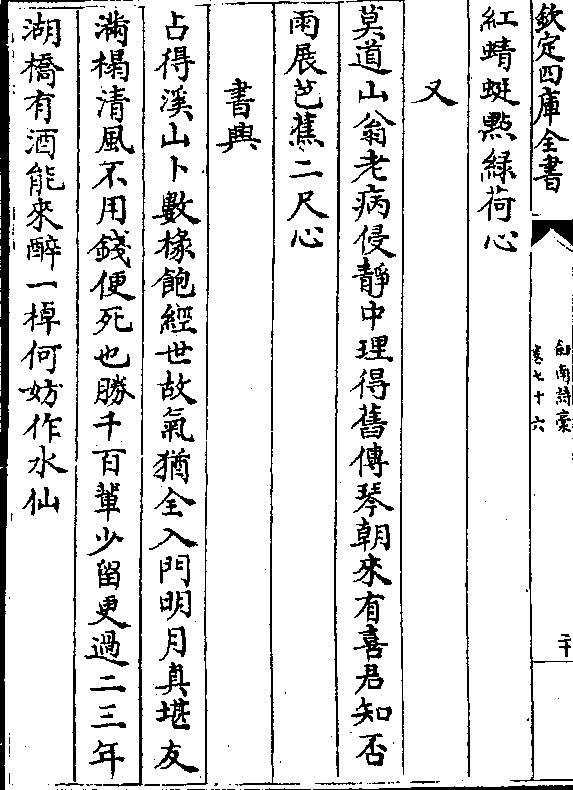 欽定四庫全書
劍南詩稾
卷七十六
二十
紅蜻蜓㸃緑荷心
又
莫道山翁老病侵靜中理得舊傳琴朝來有喜君知否
雨展芭蕉二尺心
書興
占得溪山卜數椽飽經世故氣猶全入門明月真堪友
滿榻清風不用錢便死也勝千百輩少留更過二三年
湖橋有酒能來醉一棹何妨作水仙